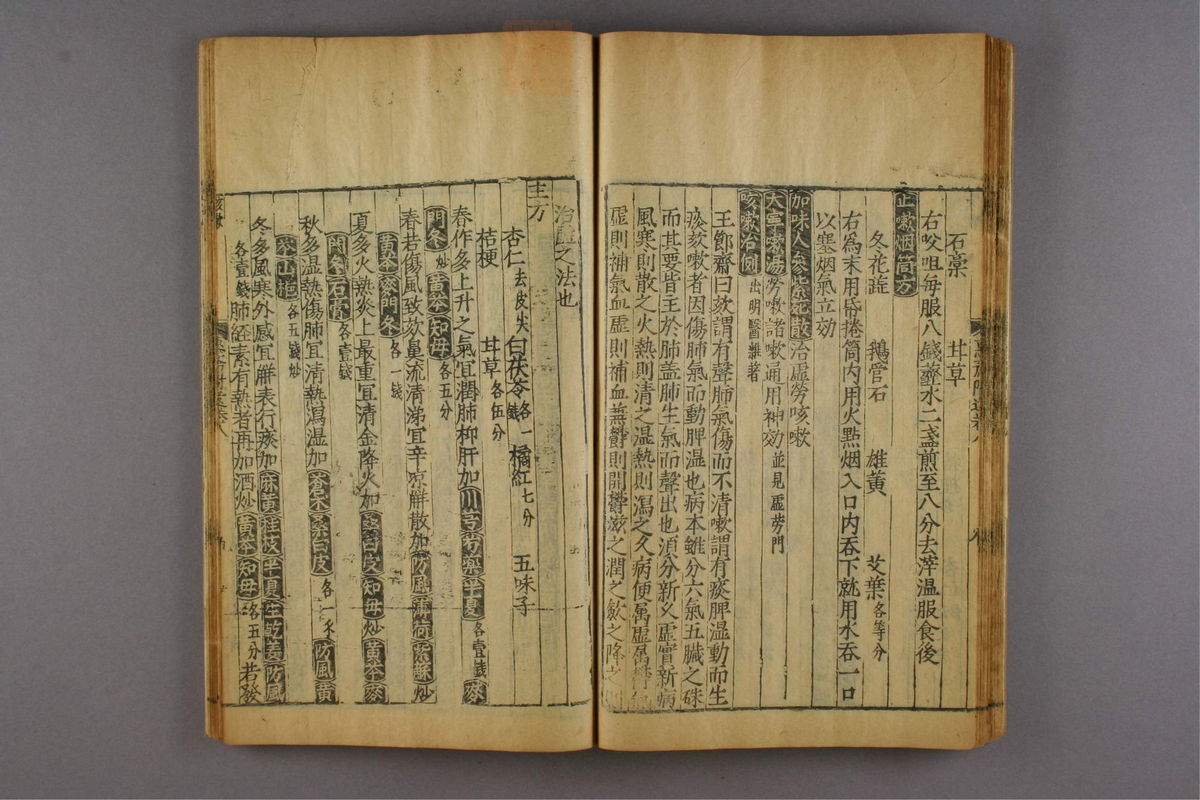 石膏 甘草
右㕮咀每服八錢蘸水二盞煎至八分去滓溫服食後
止嗽烟筒方
冬花蕋 鵝管石 雄黃 艾葉各等分
右爲末用帋捲筒內用火點烟入口內吞下就用水吞一口
以塞烟氣立効
加味人參紫菀散治虛勞咳嗽
大寧嗽湯勞嗽諸嗽通用神効並見虛勞門
咳嗽治例出明醫雜著
王節齋曰欬謂有聲肺氣傷而不清嗽謂有痰脾溼動而生
痰欬嗽者因傷肺氣而動脾溼也病本雖分六氣五臟之殊
而其要皆主於肺盖肺生氣而聲出也須分新久虛實新病
風寒則散之火熱則清之溼熱則瀉之久病便属虛属鬱氣
虛則補氣血虛則補血兼鬱則開鬱滋之潤之歛之降之則
治虛之法也
主方
杏仁去皮尖 白茯苓各一錢 橘紅七分 五味子
桔梗 甘草各伍分
春作多上升之氣宜潤肺抑肝加川芎芍藥半夏各壹錢麥
門冬炒黃芩知母各五分
春若傷風致欬鼻流清涕宜辛凉觧散加防風薄荷紫蘇炒
黃芩麥門冬各一錢
夏多火熱炎上最重宜清金降火加桑白皮知母炒黃芩麥
門冬石膏各壹錢
秋多溼熱傷肺宜清熱瀉溼加蒼朮桑白皮各一錢防風黃
芩山梔各五錢炒
冬多風寒外感宜觧表行痰加麻黃桂枝半夏生乾姜防風
各壹錢肺經素有熱者再加酒炒黃芩知母各五分若發